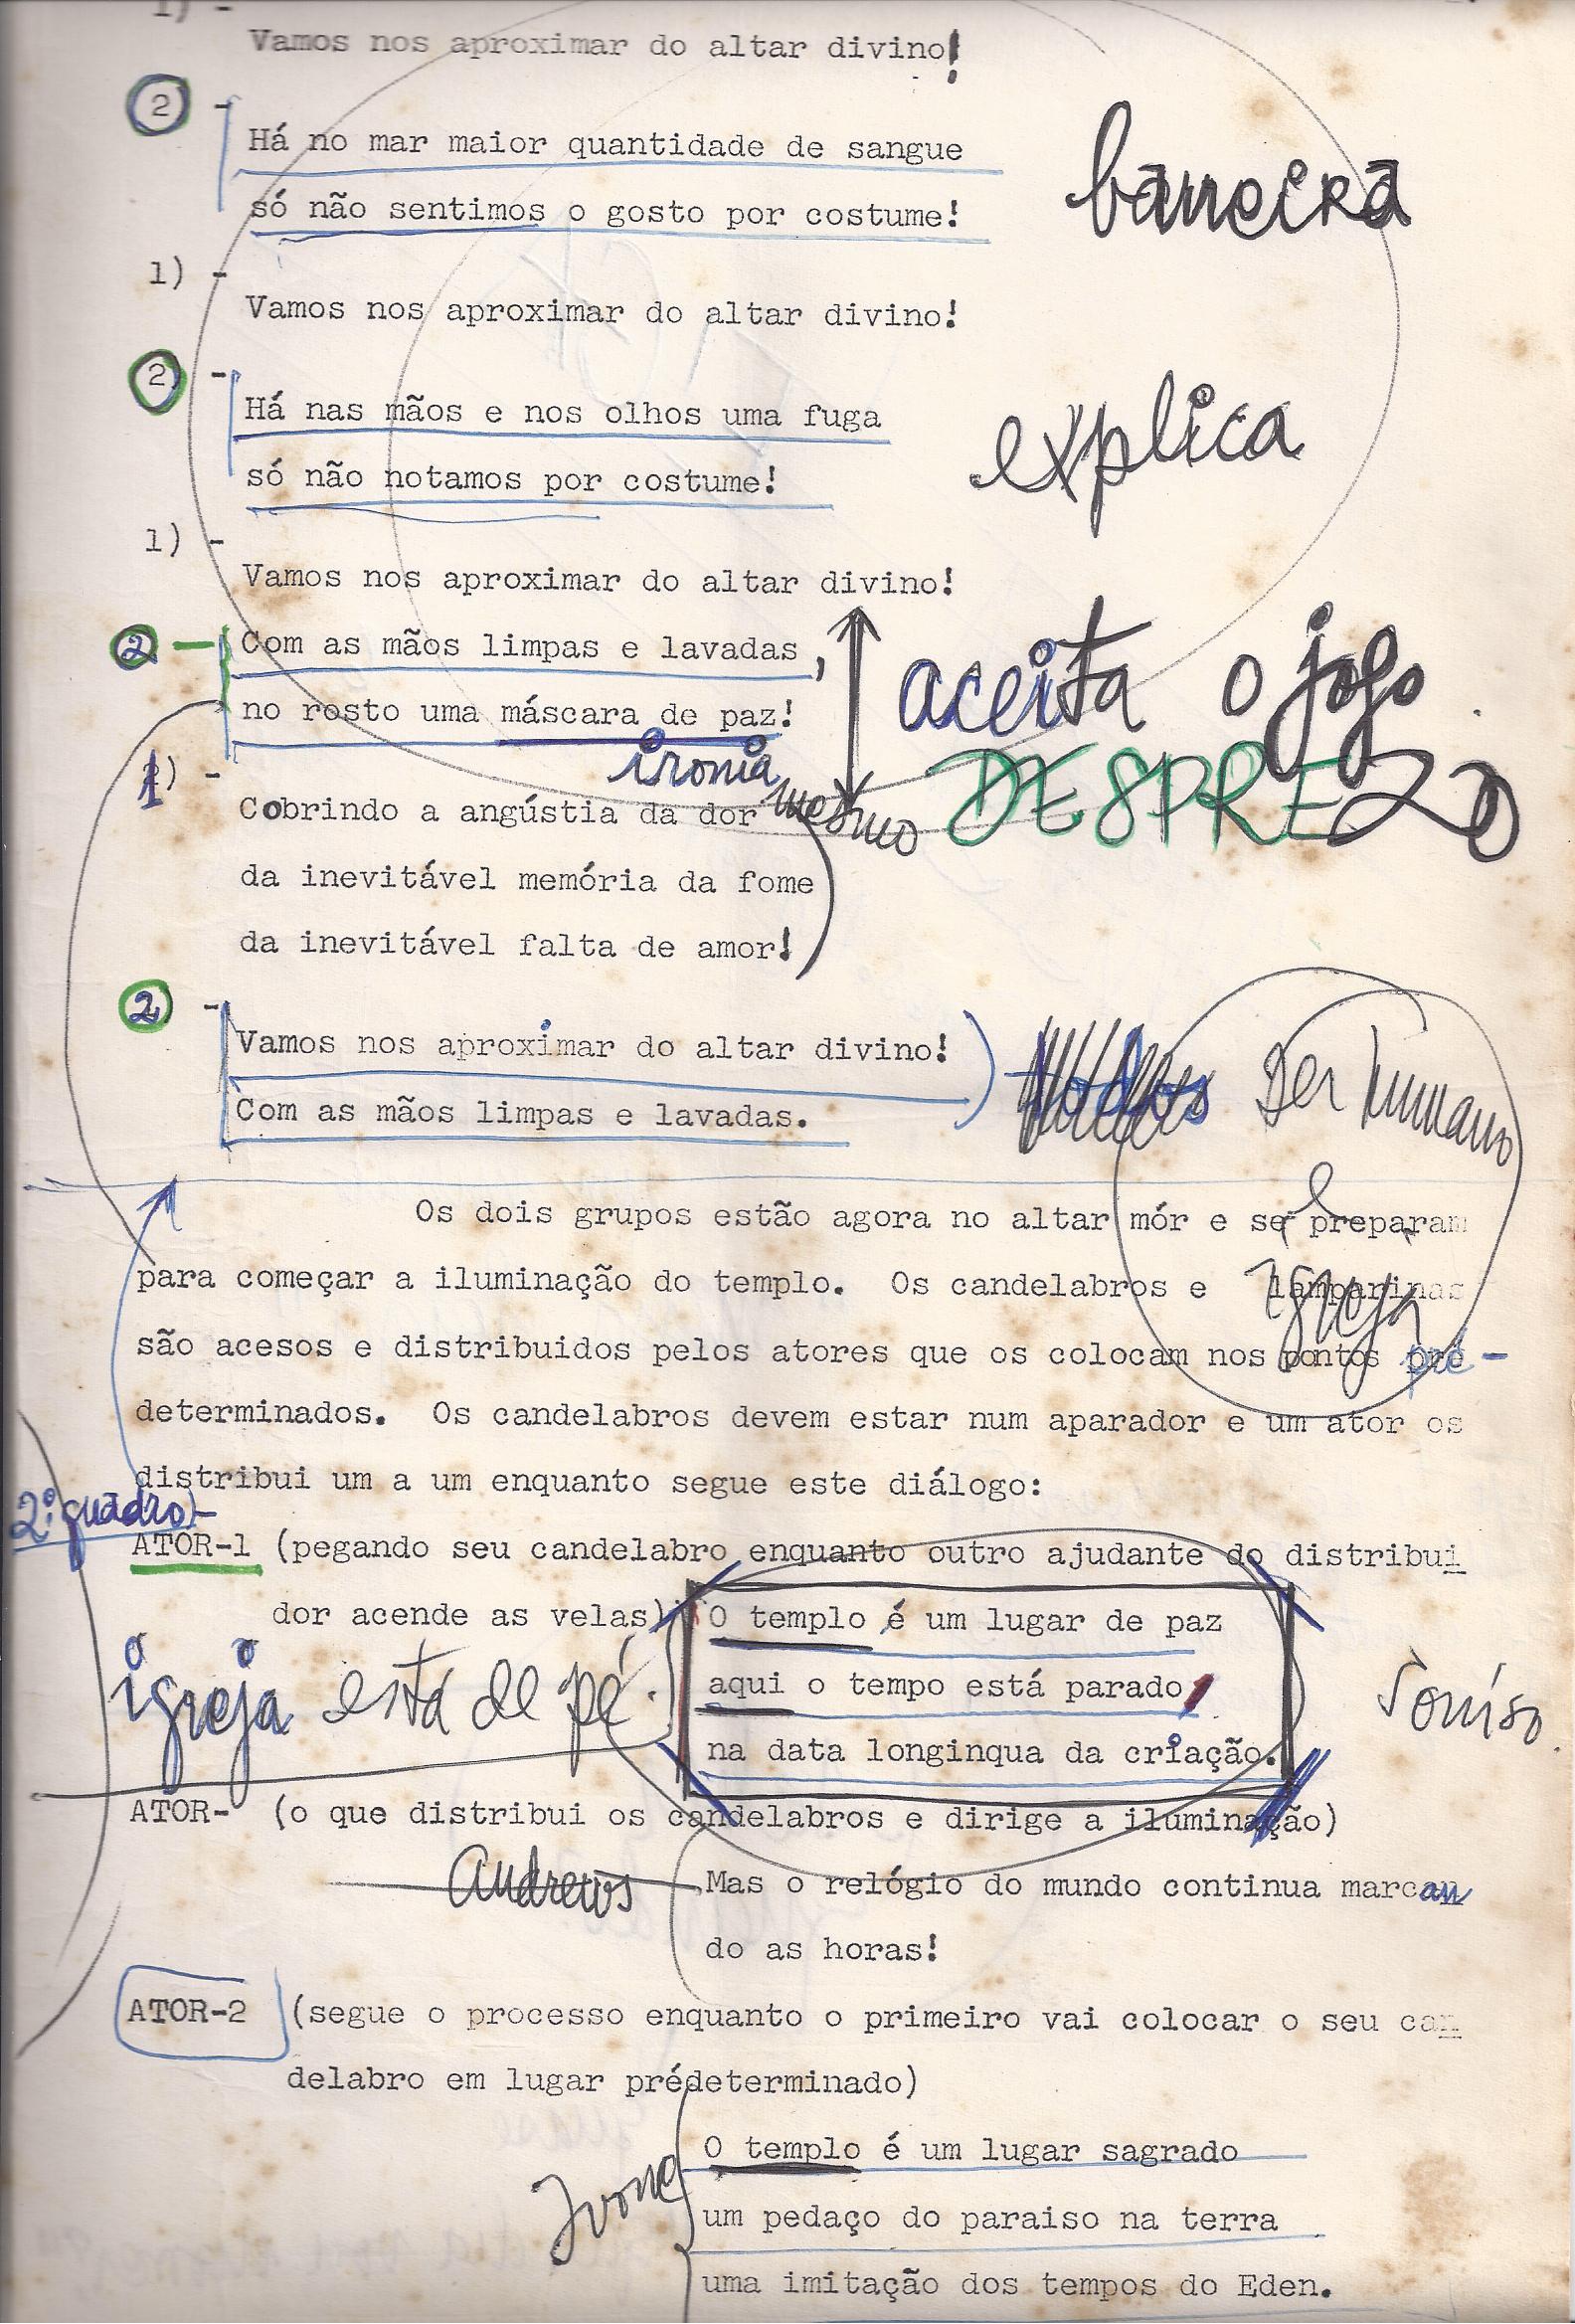 1) -
Vamos nos aproximar do altar divino!
2 -
Há no mar maior quantidade de sangue
só não sentimos o gosto por costume!
barreira
1) -
Vamos nos aproximar do altar divino!
2) -
Há nas mãos e nos olhos uma fuga
só não notamos por costume!
explica
1) -
Vamos nos aproximar do altar divino!
2 - Com as mãos limpas e lavadas,
no rosto uma máscara de paz!
aceita o jogo.
ironia mesmo
DESPREZO
1) -
Cobrindo a angústia da dor
da inevitável memória da fome
da inevitável falta de amor!
2) -
Vamos nos aproximar do altar divino!
Com as mãos limpas e lavadas.
todos
Ser humano
e
Igreja
Os dois grupos estão agora no altar mór e se preparam
para começar a iluminação do templo. Os candelabros e lamparinas
são acesos e distribuidos pelos atores que os colocam nos pontos pré-
determinados. Os candelabros devem estar num aparador e um ator os
distribui um a um enquanto segue este diálogo:
2º quadro-
ATOR-1 (pegando seu candelabro enquanto outro ajudante do distribui
dor acende as velas) O templo é um lugar de paz
aqui o tempo está parado,
na data longinqua da criação.
igreja está de pé.
Sorriso.
ATOR- (o que distribui os candelabros e dirige a iluminação)
Andrews
Mas o relógio do mundo continua marcan
do as horas!
ATOR-2 (segue o processo enquanto o primeiro vai colocar o seu can
delabro em lugar prédeterminado)
Ivone
O templo é um lugar sagrado
um pedaço do paraiso na terra
uma imitação dos tempos do Eden.